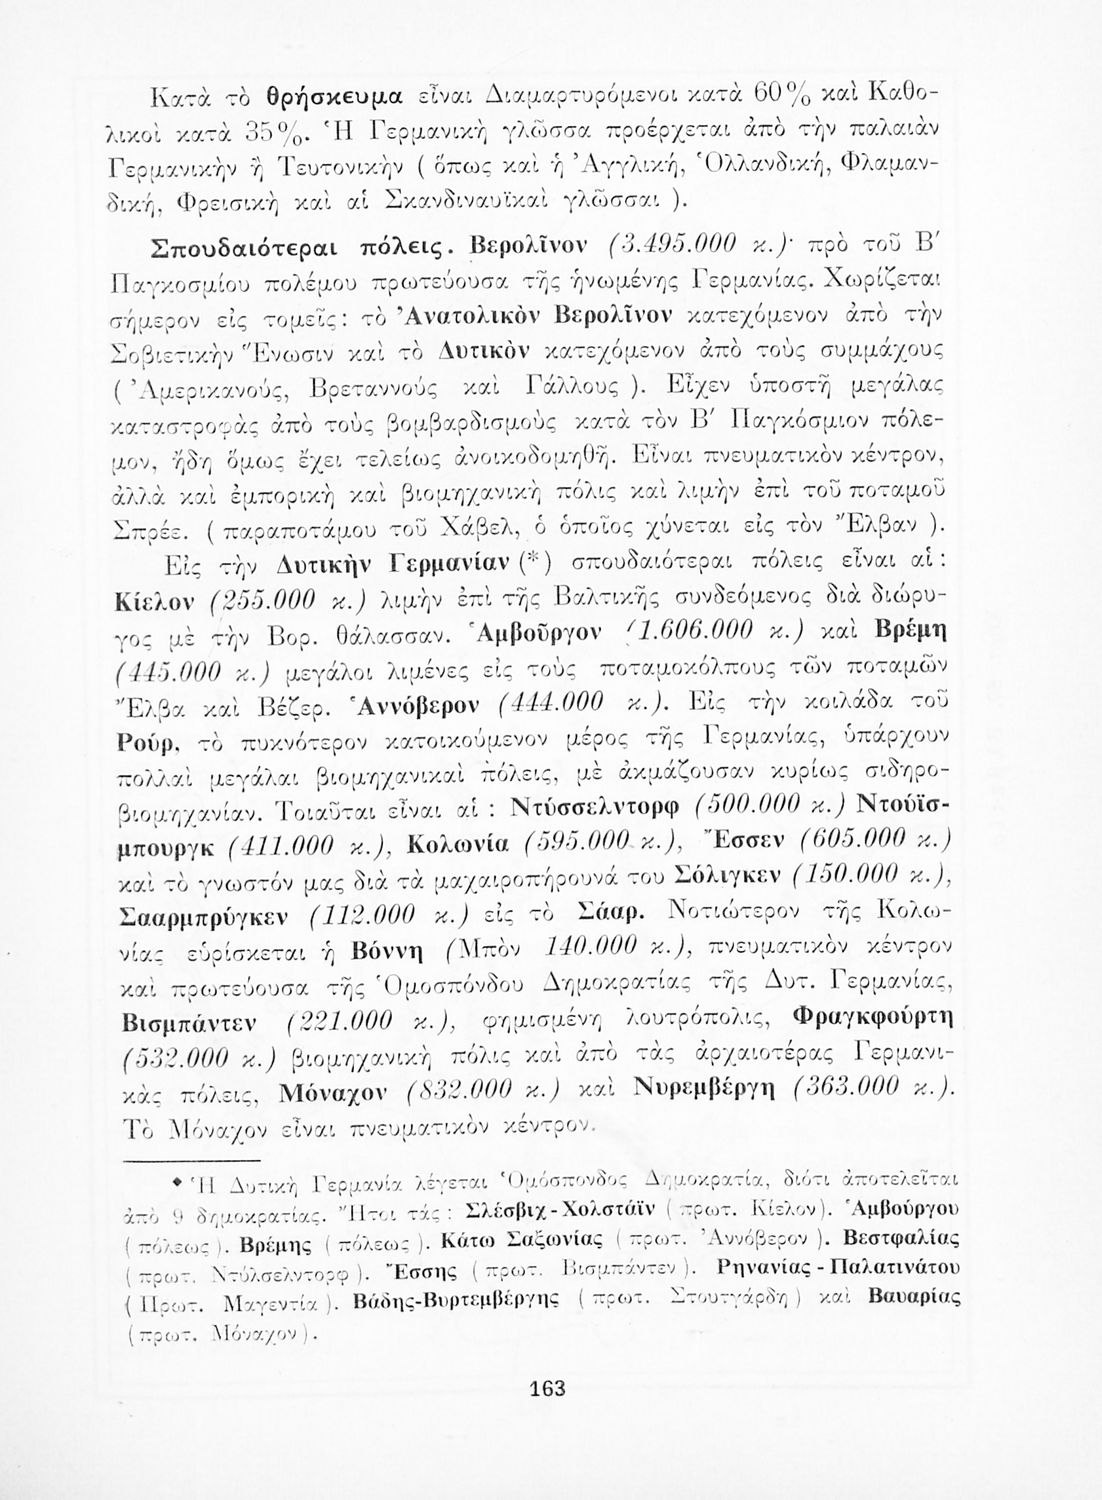 Κατὰ τὸ θρήσκευμα εἶναι Διαμαρτυρόμενοι κατὰ 60% καὶ Καθο-
λικοὶ κατὰ 35%. Ἡ Γερμανικὴ γλῶσσα προέρχεται ἀπὸ τὴν παλαιὰν
Γερμανικὴν ἢ Τευτονικὴν ( ὅπως καὶ ἡ Ἀγγλική, Ὁλλανδική, Φλαμαν-
δική, Φρεισικὴ καὶ αἱ Σκανδιναυϊκαὶ γλῶσσαι ).
Σπουδαιότεραι πόλεις. Βερολῖνον (3.495.000 κ.)· πρὸ τοῦ Β′
Παγκοσμίου πολέμου πρωτεύουσα τῆς ἡνωμένης Γερμανίας. Χωρίζεται
σήμερον εἰς τομεῖς: τὸ Ἀνατολικὸν Βερολῖνον κατεχόμενον ἀπὸ τὴν
Σοβιετικὴν Ἕνωσιν καὶ τὸ Δυτικὸν κατεχόμενον ἀπὸ τοὺς συμμάχους
( Ἀμερικανούς, Βρεταννοὺς καὶ Γάλλους ). Εἶχεν ὑποστῆ μεγάλας
καταστροφὰς ἀπὸ τοὺς βομβαρδισμοὺς κατὰ τὸν Β′ Παγκόσμιον πόλε-
μον, ἤδη ὅμως ἔχει τελείως ἀνοικοδομηθῆ. Εἶναι πνευματικὸν κέντρον,
ἀλλὰ καὶ ἐμπορικὴ καὶ βιομηχανικὴ πόλις καὶ λιμὴν ἐπὶ τοῦ ποταμοῦ
Σπρέε. ( παραποτάμου τοῦ Χάβελ, ὁ ὁποῖος χύνεται εἰς τὸν Ἔλβαν ).
Εἰς τὴν Δυτικὴν Γερμανίαν (*) σπουδαιότεραι πόλεις εἶναι αἱ :
Κίελον (255.000 κ.) λιμὴν ἐπὶ τῆς Βαλτικῆς συνδεόμενος διὰ διώρυ-
γος μὲ τὴν Βορ. θάλασσαν. Ἁμβοῦργον (1.606.000 κ.) καὶ Βρέμη
(445.000 κ.) μεγάλοι λιμένες εἰς τοὺς ποταμοκόλπους τῶν ποταμῶν
Ἔλβα καὶ Βέζερ. Ἁννόβερον (444.000 κ.). Εἰς τὴν κοιλάδα τοῦ
Ρούρ, τὸ πυκνότερον κατοικούμενον μέρος τῆς Γερμανίας, ὑπάρχουν
πολλαὶ μεγάλαι βιομηχανικαὶ πόλεις, μὲ ἀκμάζουσαν κυρίως σιδηρο-
βιομηχανίαν. Τοιαῦται εἶναι αἱ : Ντύσσελντορφ (500.000 κ.) Ντούϊσ-
μπουργκ (411.000 κ.), Κολωνία (595.000 κ.), Ἔσσεν (605.000 κ.)
καὶ τὸ γνωστόν μας διὰ τὰ μαχαιροπήρουνά του Σόλιγκεν (150.000 κ.),
Σααρμπρύγκεν (112.000 κ.) εἰς τὸ Σάαρ. Νοτιώτερον τῆς Κολω-
νίας εὑρίσκεται ἡ Βόννη (Μπὸν 140.000 κ.), πνευματικὸν κέντρον
καὶ πρωτεύουσα τῆς Ὁμοσπόνδου Δημοκρατίας τῆς Δυτ. Γερμανίας,
Βισμπάντεν (221.000 κ.), φημισμένη λουτρόπολις, Φραγκφούρτη
(532.000 κ.) βιομηχανικὴ πόλις καὶ ἀπὸ τὰς ἀρχαιοτέρας Γερμανι-
κὰς πόλεις, Μόναχον (832.000 κ.) καὶ Νυρεμβέργη (363.000 κ.).
Τὸ Μόναχον εἶναι πνευματικὸν κέντρον.
* Ἡ Δυτικὴ Γερμανία λέγεται Ὁμόσπονδος Δημοκρατία, διότι ἀποτελεῖται
ἀπὸ 9 δημοκρατίας. Ἤτοι τάς : Σλέσβιχ-Χολστάϊν ( πρωτ. Κίελον). Ἁμβούργου
( πόλεως ). Βρέμης ( πόλεως ). Κάτω Σαξωνίας ( πρωτ. Ἀννόβερον ). Βεστφαλίας
( πρωτ. Ντύλσελντορφ ). Ἔσσης ( πρωτ. Βισμπάντεν ). Ρηνανίας - Παλατινάτου
( Πρωτ. Μαγεντία ). Βάδης-Βυρτεμβέργης ( πρωτ. Στουτγάρδη ) καὶ Βαυαρίας
( πρωτ. Μόναχον ).
163